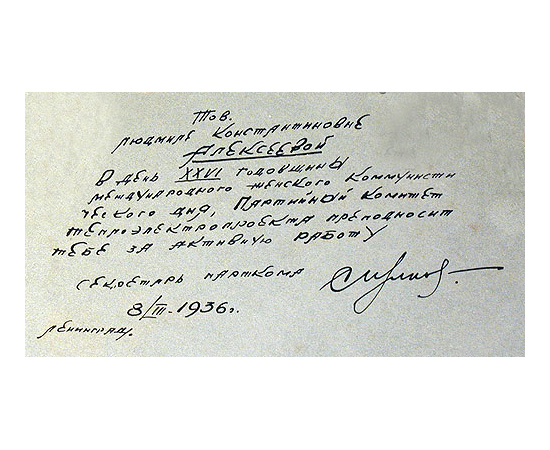 Тов.
Людмиле Константиновне
Алексеевой
В день XXVI годовщины
международного женского коммунисти
ческого дня, Партийный Комитет
Теплоэлектропроекта преподносит
тебе за активную работу
Секретарь парткома
8/III-1936г.
Ленинград.